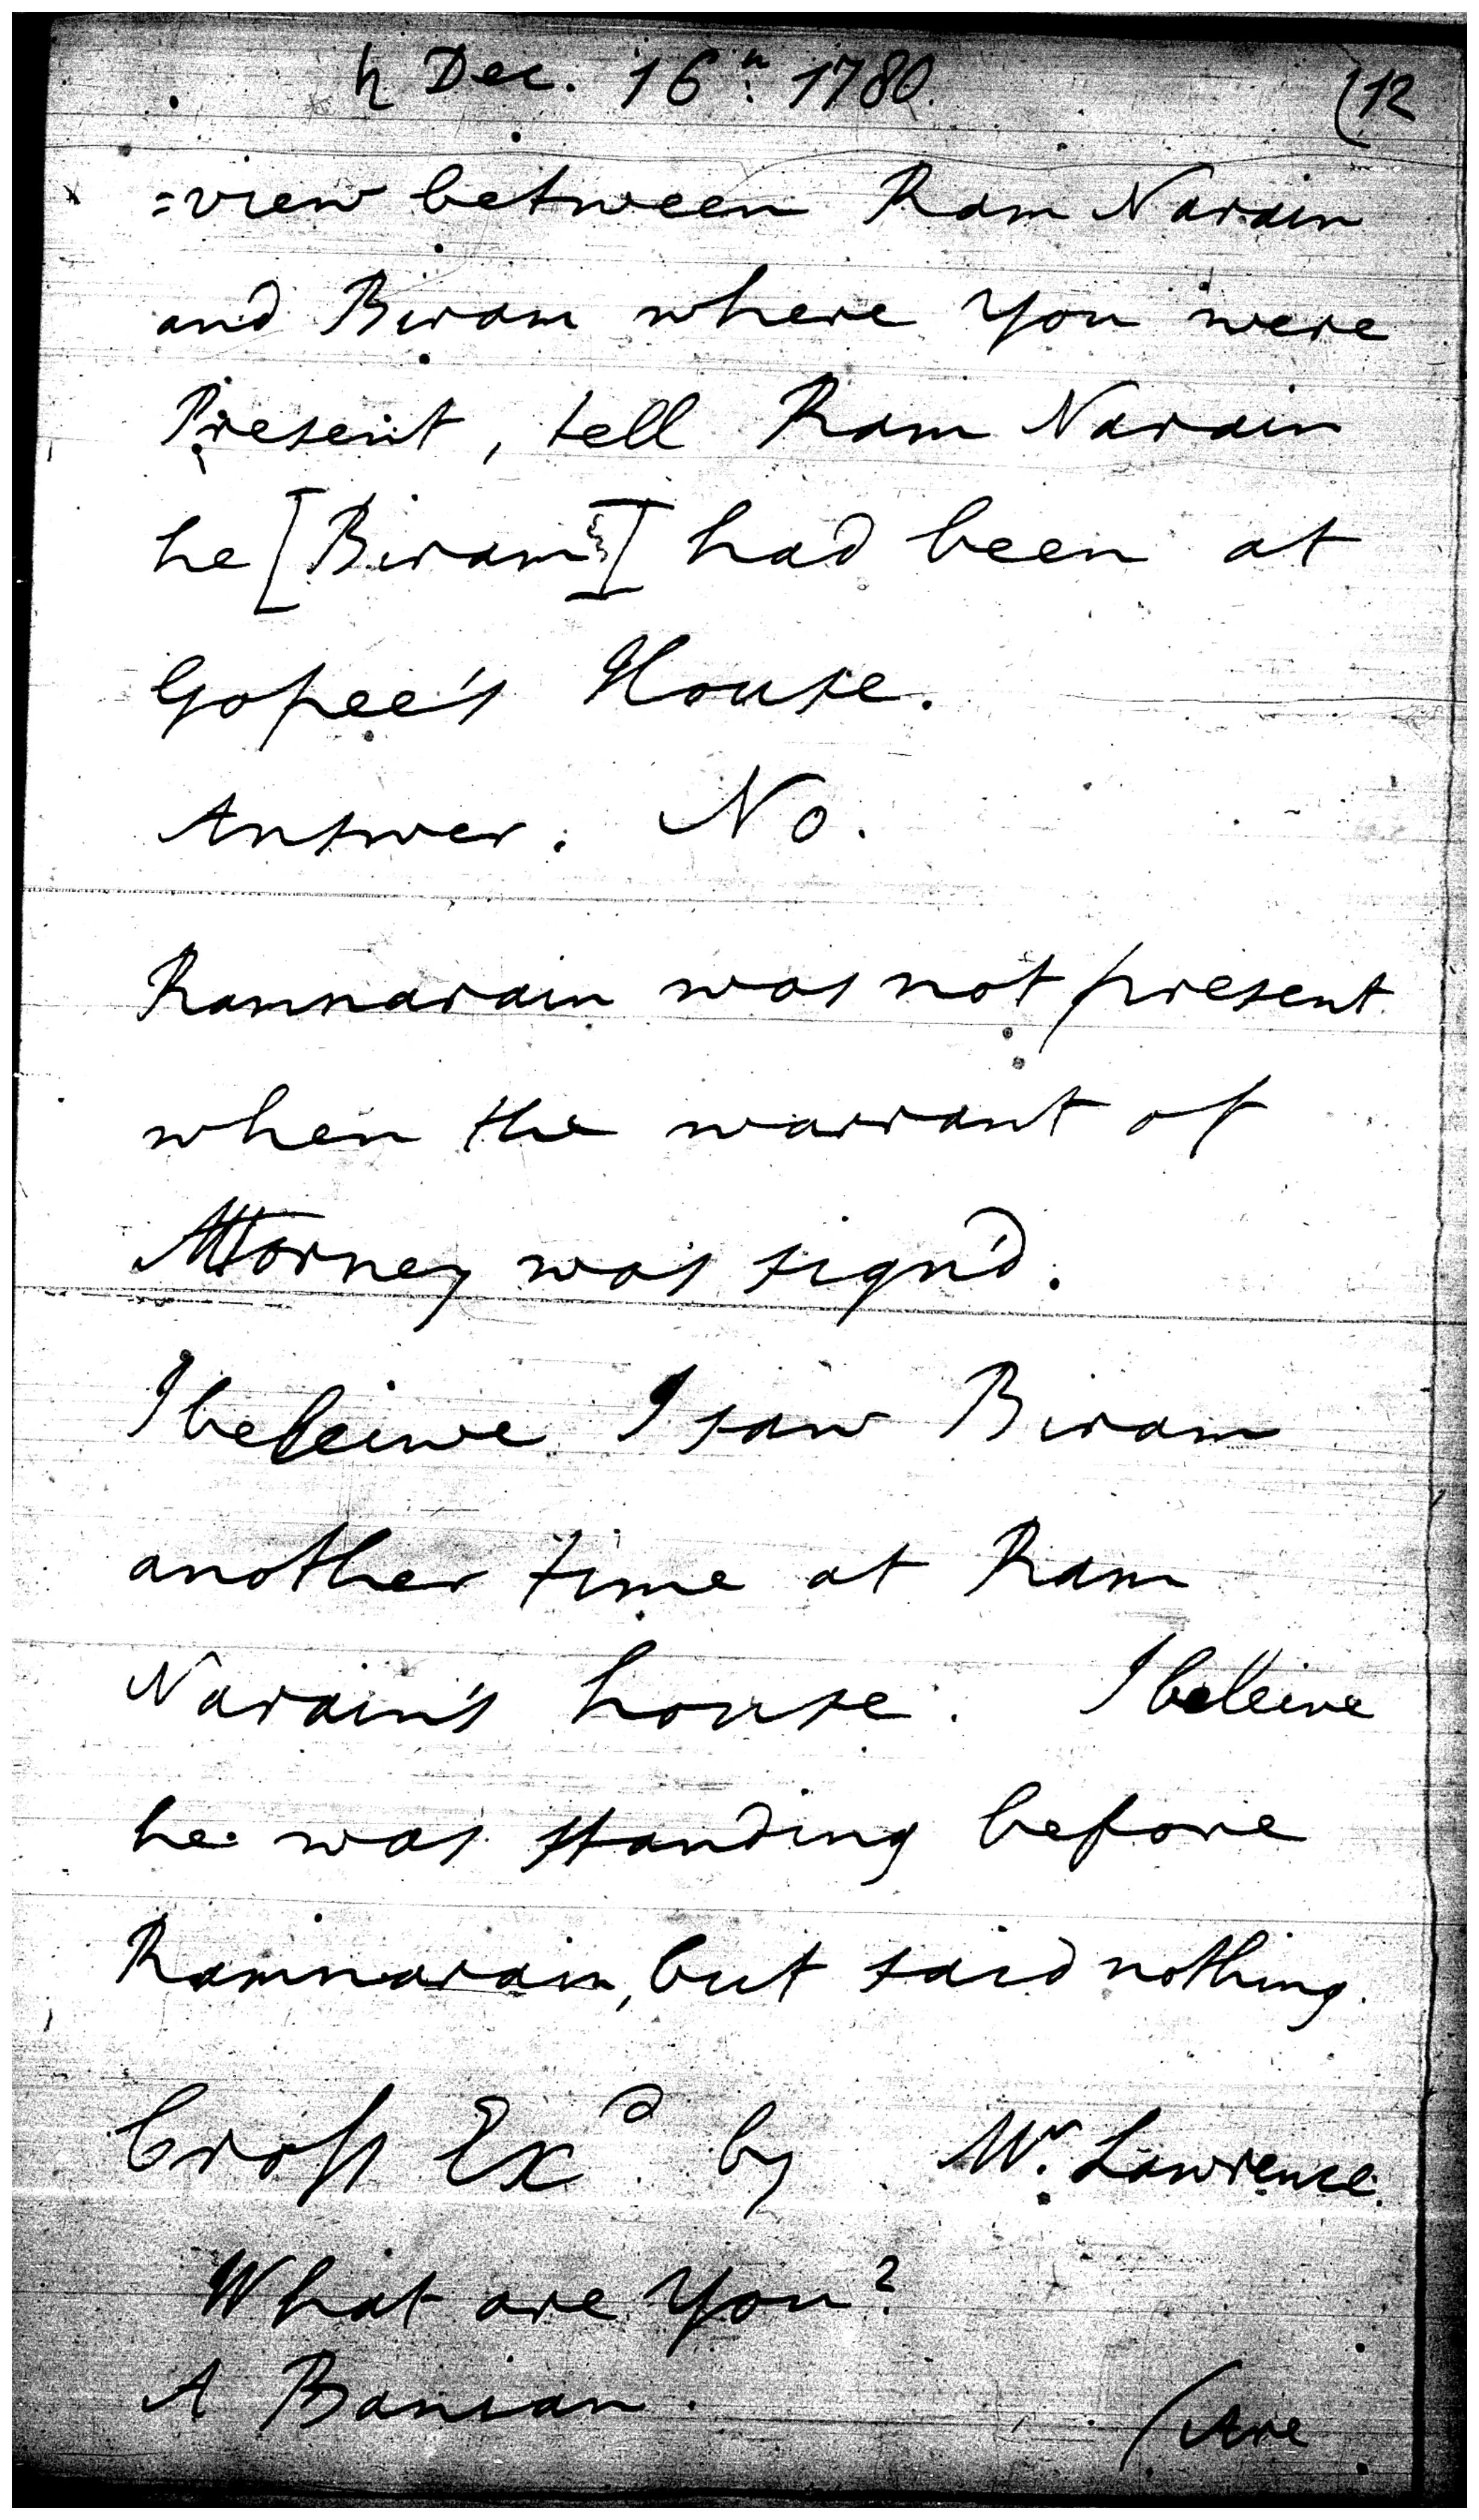 ♄ Dec. 16th: 1780. (12
=view between Ram Narain
and Biram where You were
Present, tell Ram Narain
he [Biram] had been at
Gopee's House.
Answer. No.
Ramnarain was not present
when the warrant of
Attorney was sign'd.
I beleive I saw Biram
another time at Ram
Narain's house. I beleive
he was standing before
Ramnarain, but said nothing.
Cross Exd. by Mr. Lawrence.
What are You?
A Banian.
(Are